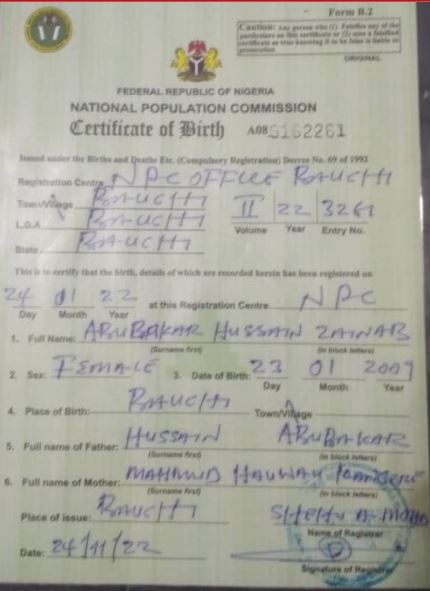 Form B.2
Caution: Any person who (1) Falsifies any of the
particulars on this certificate or (2) uses a falsified
certificate as true knowing it to be false is liable to
prosecution
ORIGINAL
FEDERAL REPUBLIC OF NIGERIA
NATIONAL POPULATION COMMISSION
Certificate of Birth A086162261
Issued under the Births and Deaths Etc. (Compulsory Registration) Decree No. 69 of 1992
Registration Centre NPC OFFICE BAUCHI
Town/Village BAUCHI
L.G.A BAUCHI
State BAUCHI
II 22 3261
Volume Year Entry No.
This is to certify that the birth, details of which are recorded herein has been registered on
24 01 22 at this Registration Centre NPC
Day Month Year
1. Full Name: ABUBAKAR HUSSAIN ZAINAB
(Surname first) (in block letters)
2. Sex: FEMALE 3. Date of Birth: 23 01 2009
Day Month Year
4. Place of Birth: BAUCHI Town/Village
5. Full name of Father: HUSSAIN ABUBAKAR
(Surname first) (in block letters)
6. Full name of Mother: MAHAMUD HAUWAU
(Surname first) (in block letters)
Place of issue: BAUCHI SHEHU A. MOHD
Name of Registrar
Date: 24/11/22
Signature of Registrar